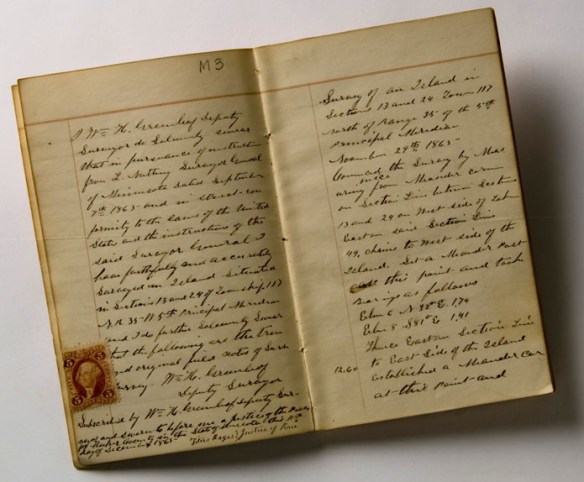 M3
I Wm H. Greenleaf Deputy
Surveyor do Solemnly swear
that in pursuance of instructions
from L. Nutting Surveyor General
of Minnesota dated September
7th 1865 and in strict con
formity to the laws of the United
States and the instructions of the
said Surveyor General I
have faithfully and accurately
Surveyed an Island Situated
in Sections 13 and 24 of Township 117
N. R. 35 W 5th Principal Meridian
and I do further Solemnly Swear
that the following are the true
and original field notes of Said
Survey. Wm H. Greenleaf
Deputy Surveyor
Subscribed by Wm H. Greenleaf Deputy Sur-
veyor and sworn to before me a Justice of the Peace
County in the State of Minnesota this
day of December 1865
Justice of Peace
5 5
Survey of an Island in
Sections 13 and 24 Town 117
north of Range 35 of the 5th
Principal Meridian
November 29th 1865
Commenced the Survey by Meas
uring from Meander corner
on Section Line between Sections
13 and 24 on West side of Lake
East on said Section Line
49, chains to West side of the
Island. Set a Meander Post
at this point and took
Bearings as follows
Elm 6 N 174
Elm 8 S 81° E 191
Thence East on Section Line
12.60 to East Side of the Island
Established a Meander Cor
at this point and